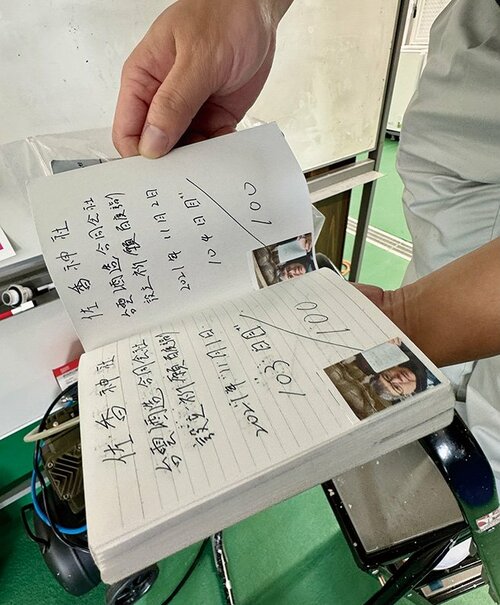 佐香神社
台雲酒造合同会社
設立祈願百度詣
2021年11月2日
104日目/100
佐香神社
台雲酒造合同会社
設立祈願百度詣
2021年11月1日
103日目/100